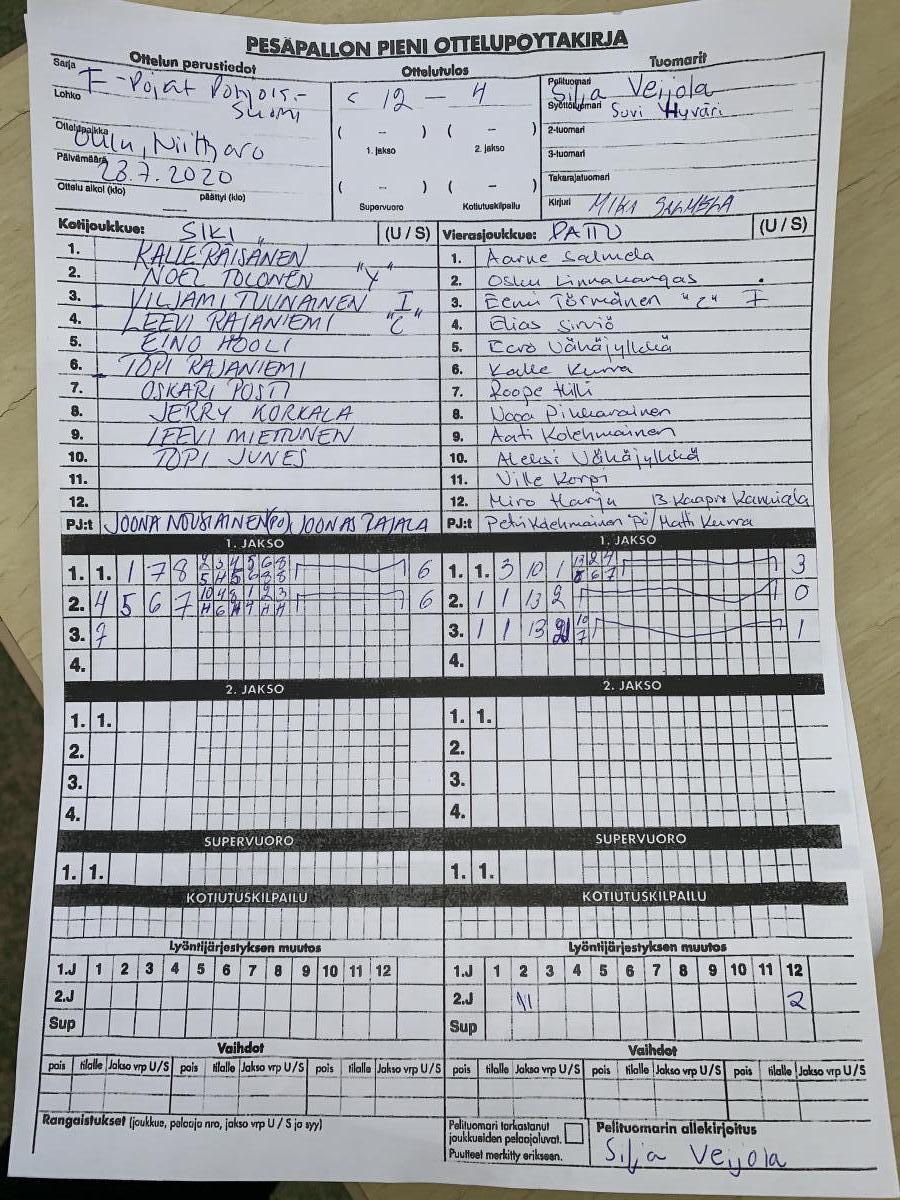 PESÄPALLON PIENI OTTELUPÖYTÄKIRJA
Ottelun perustiedot
Ottelutulos
Tuomarit
Sarja
E-Pojat Pohjois-
Lohko
Suomi
Ottelupaikka
Oulu, Niittyaro
Päivämäärä
28.7.2020
Ottelu alkoi (klo) päättyi (klo)
12 - 4
( - ) ( - )
1. jakso 2. jakso
( - ) ( - )
Supervuoro Kotiutuskilpailu
Pelituomari Silja Veijola
Syöttötuomari Suvi Hyväri
2-tuomari
3-tuomari
Takarajatuomari
Kirjuri MIKA SALMELA
Kotijoukkue: SIKI (U / S)
1. KALLE RÄISÄNEN
2. NOEL TOLONEN "V"
3. VILJAMI TUUNAINEN I
4. LEEVI RAJANIEMI "C"
5. EINO HOOLI
6. TOPI RAJANIEMI
7. OSKARI POSTI
8. JERRY KORKALA
9. LEEVI MIETTUNEN
10. TOPI JUNES
11.
12.
PJ:t JOONA NOUSIAINEN (PO), JOONAS RAJALA
Vierasjoukkue: PATTU (U / S)
1. Aarne Salmela
2. Osku Linnakangas
3. Eemi Törmänen "C" I
4. Elias Sirviö
5. Eero Vähäjylkkä
6. Kalle Kurra
7. Roope Hilli
8. Nooa Pikkarainen
9. Aati Kolehmainen
10. Aleksi Vähäjylkkä
11. Ville Korpi
12. Miro Harju 13 Kaapro
PJ:t Petri Kolehmainen PO / Matti Kurra
1. JAKSO
1. 1. 1 7 8 2 3 4 5 6 8 6
5 H 5 6 8 8
2. 4 5 6 7 10 4 8 1 2 3 6
H 6 H 7 H H
3. 7
4.
1. JAKSO
1. 1. 3 10 1 13 2 4 3
8 6 7
2. 1 1 13 2 0
3. 1 1 13 10 1
7
4.
2. JAKSO
1. 1.
2.
3.
4.
2. JAKSO
1. 1.
2.
3.
4.
SUPERVUORO
1. 1.
SUPERVUORO
1. 1.
KOTIUTUSKILPAILU
KOTIUTUSKILPAILU
Lyöntijärjestyksen muutos
1.J 1 2 3 4 5 6 7 8 9 10 11 12
2.J
Sup
Lyöntijärjestyksen muutos
1.J 1 2 3 4 5 6 7 8 9 10 11 12
2.J 11 2
Sup
Vaihdot
pois tilalle Jakso vrp U / S pois tilalle Jakso vrp U / S pois tilalle Jakso vrp U / S
Vaihdot
pois tilalle Jakso vrp U / S pois tilalle Jakso vrp U / S pois tilalle Jakso vrp U / S
Rangaistukset (joukkue, pelaaja nro, jakso vrp U / S ja syy)
Pelituomari tarkastanut
joukkueiden pelaajaluvat.
Puutteet merkitty erikseen.
Pelituomarin allekirjoitus
Silja Veijola